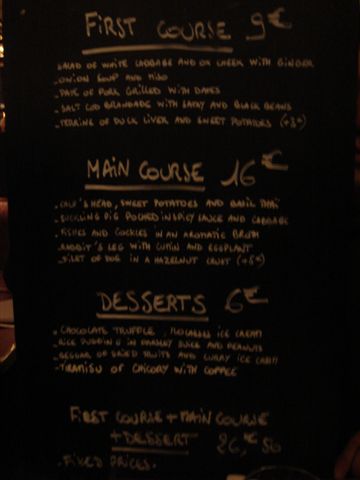 FIRST COURSE 9€
SALAD OF WHITE CABBAGE AND OX CHEEK WITH GINGER
- ONION SOUP AND MISO
- PATE OF PORK GRILLED WITH DATES
- SALT COD BRANDADE WITH SATAY AND BLACK BEANS
- TERRINE OF DUCK LIVER AND SWEET POTATOES (+3€)
MAIN COURSE 16€
- CALF'S HEAD, SWEET POTATOES AND BASIL THAÏ
- SUCKLING PIG POCHED IN SPICY SAUCE AND CABBAGE
- FISHES AND COCKLES IN AN AROMATIC BROTH
- RABBIT'S LEG WITH CUMIN AND EGGPLANT
- FILET OF IN A HAZELNUT CRUST
DESSERTS 6€
- CHOCOLATE TRUFFLE, ICE CREAM
- RICE PUDDING IN JUICE AND PEANUTS
- OF DRIED FRUITS AND CURRY ICE CREAM
- TIRAMISU OF CHICORY WITH COFFEE
FIRST COURSE + MAIN COURSE
+ DESSERT 26,€50
- FIXED PRICES -